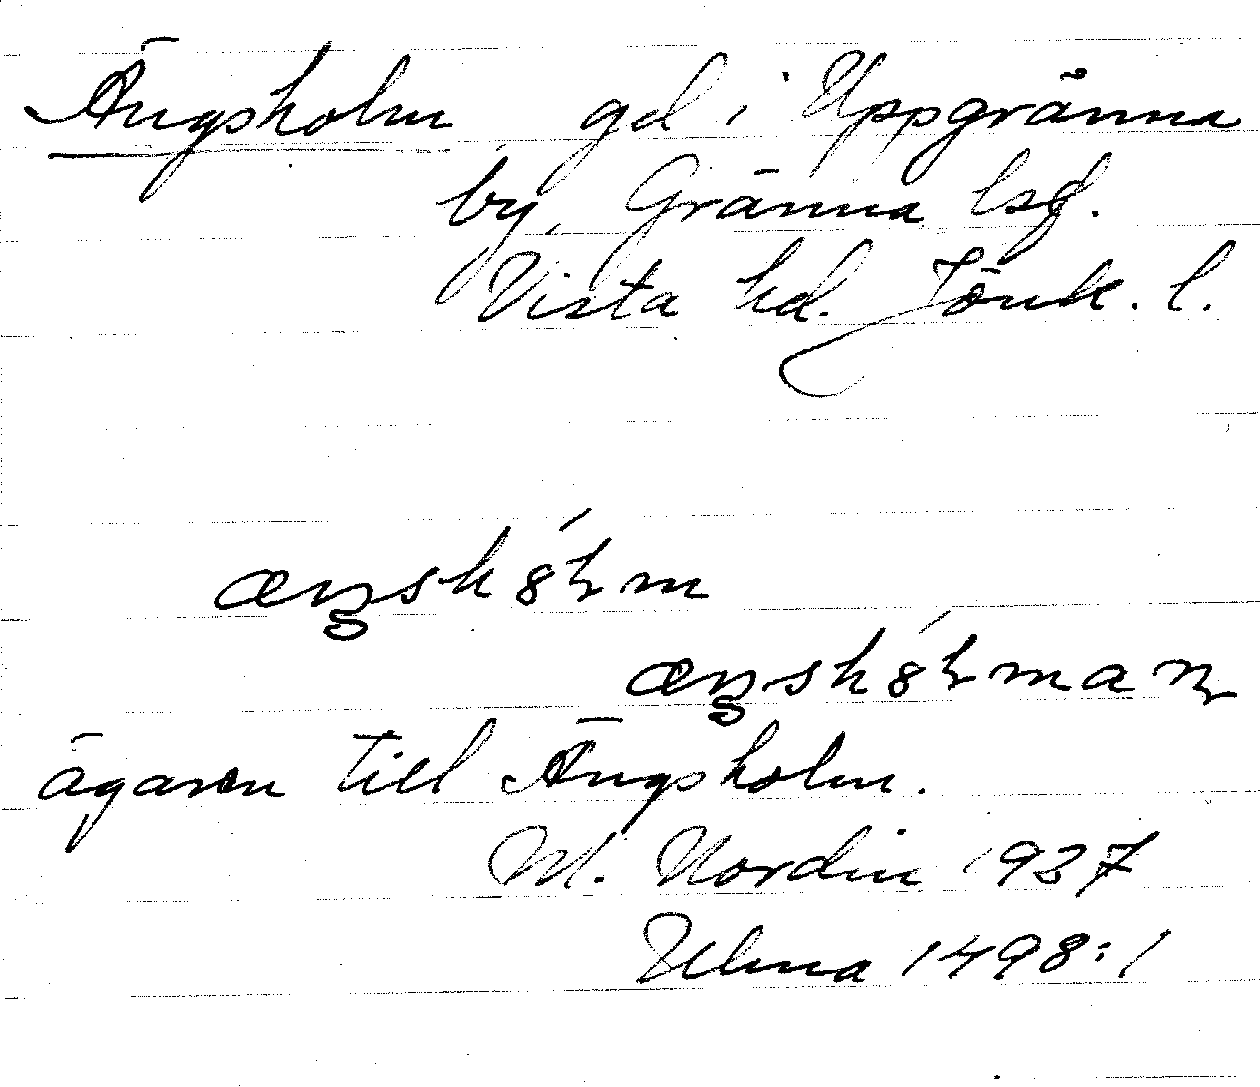 Ängsholm gd i Uppgränna
by, Gränna lsf.
Vista hd. Jönk. l.
ägaren till Ängsholm.
M. Nordin 1937
Ulma 1498:1